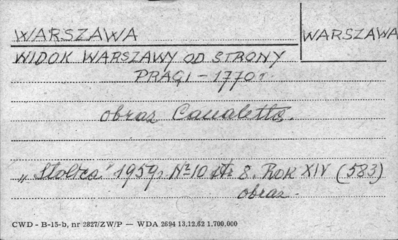 WARSZAWA
WARSZAWA
WIDOK WARSZAWY OD STRONY
PRAGI - 1770 r.
obraz Canaletta.
„Stolica" 1959 r. Nr 10 str 8. ROK XIV (583)
obraz.
CWD - B-15-b, nr 2827/ZW/P — WDA 2694 13.12.62 1.700.000